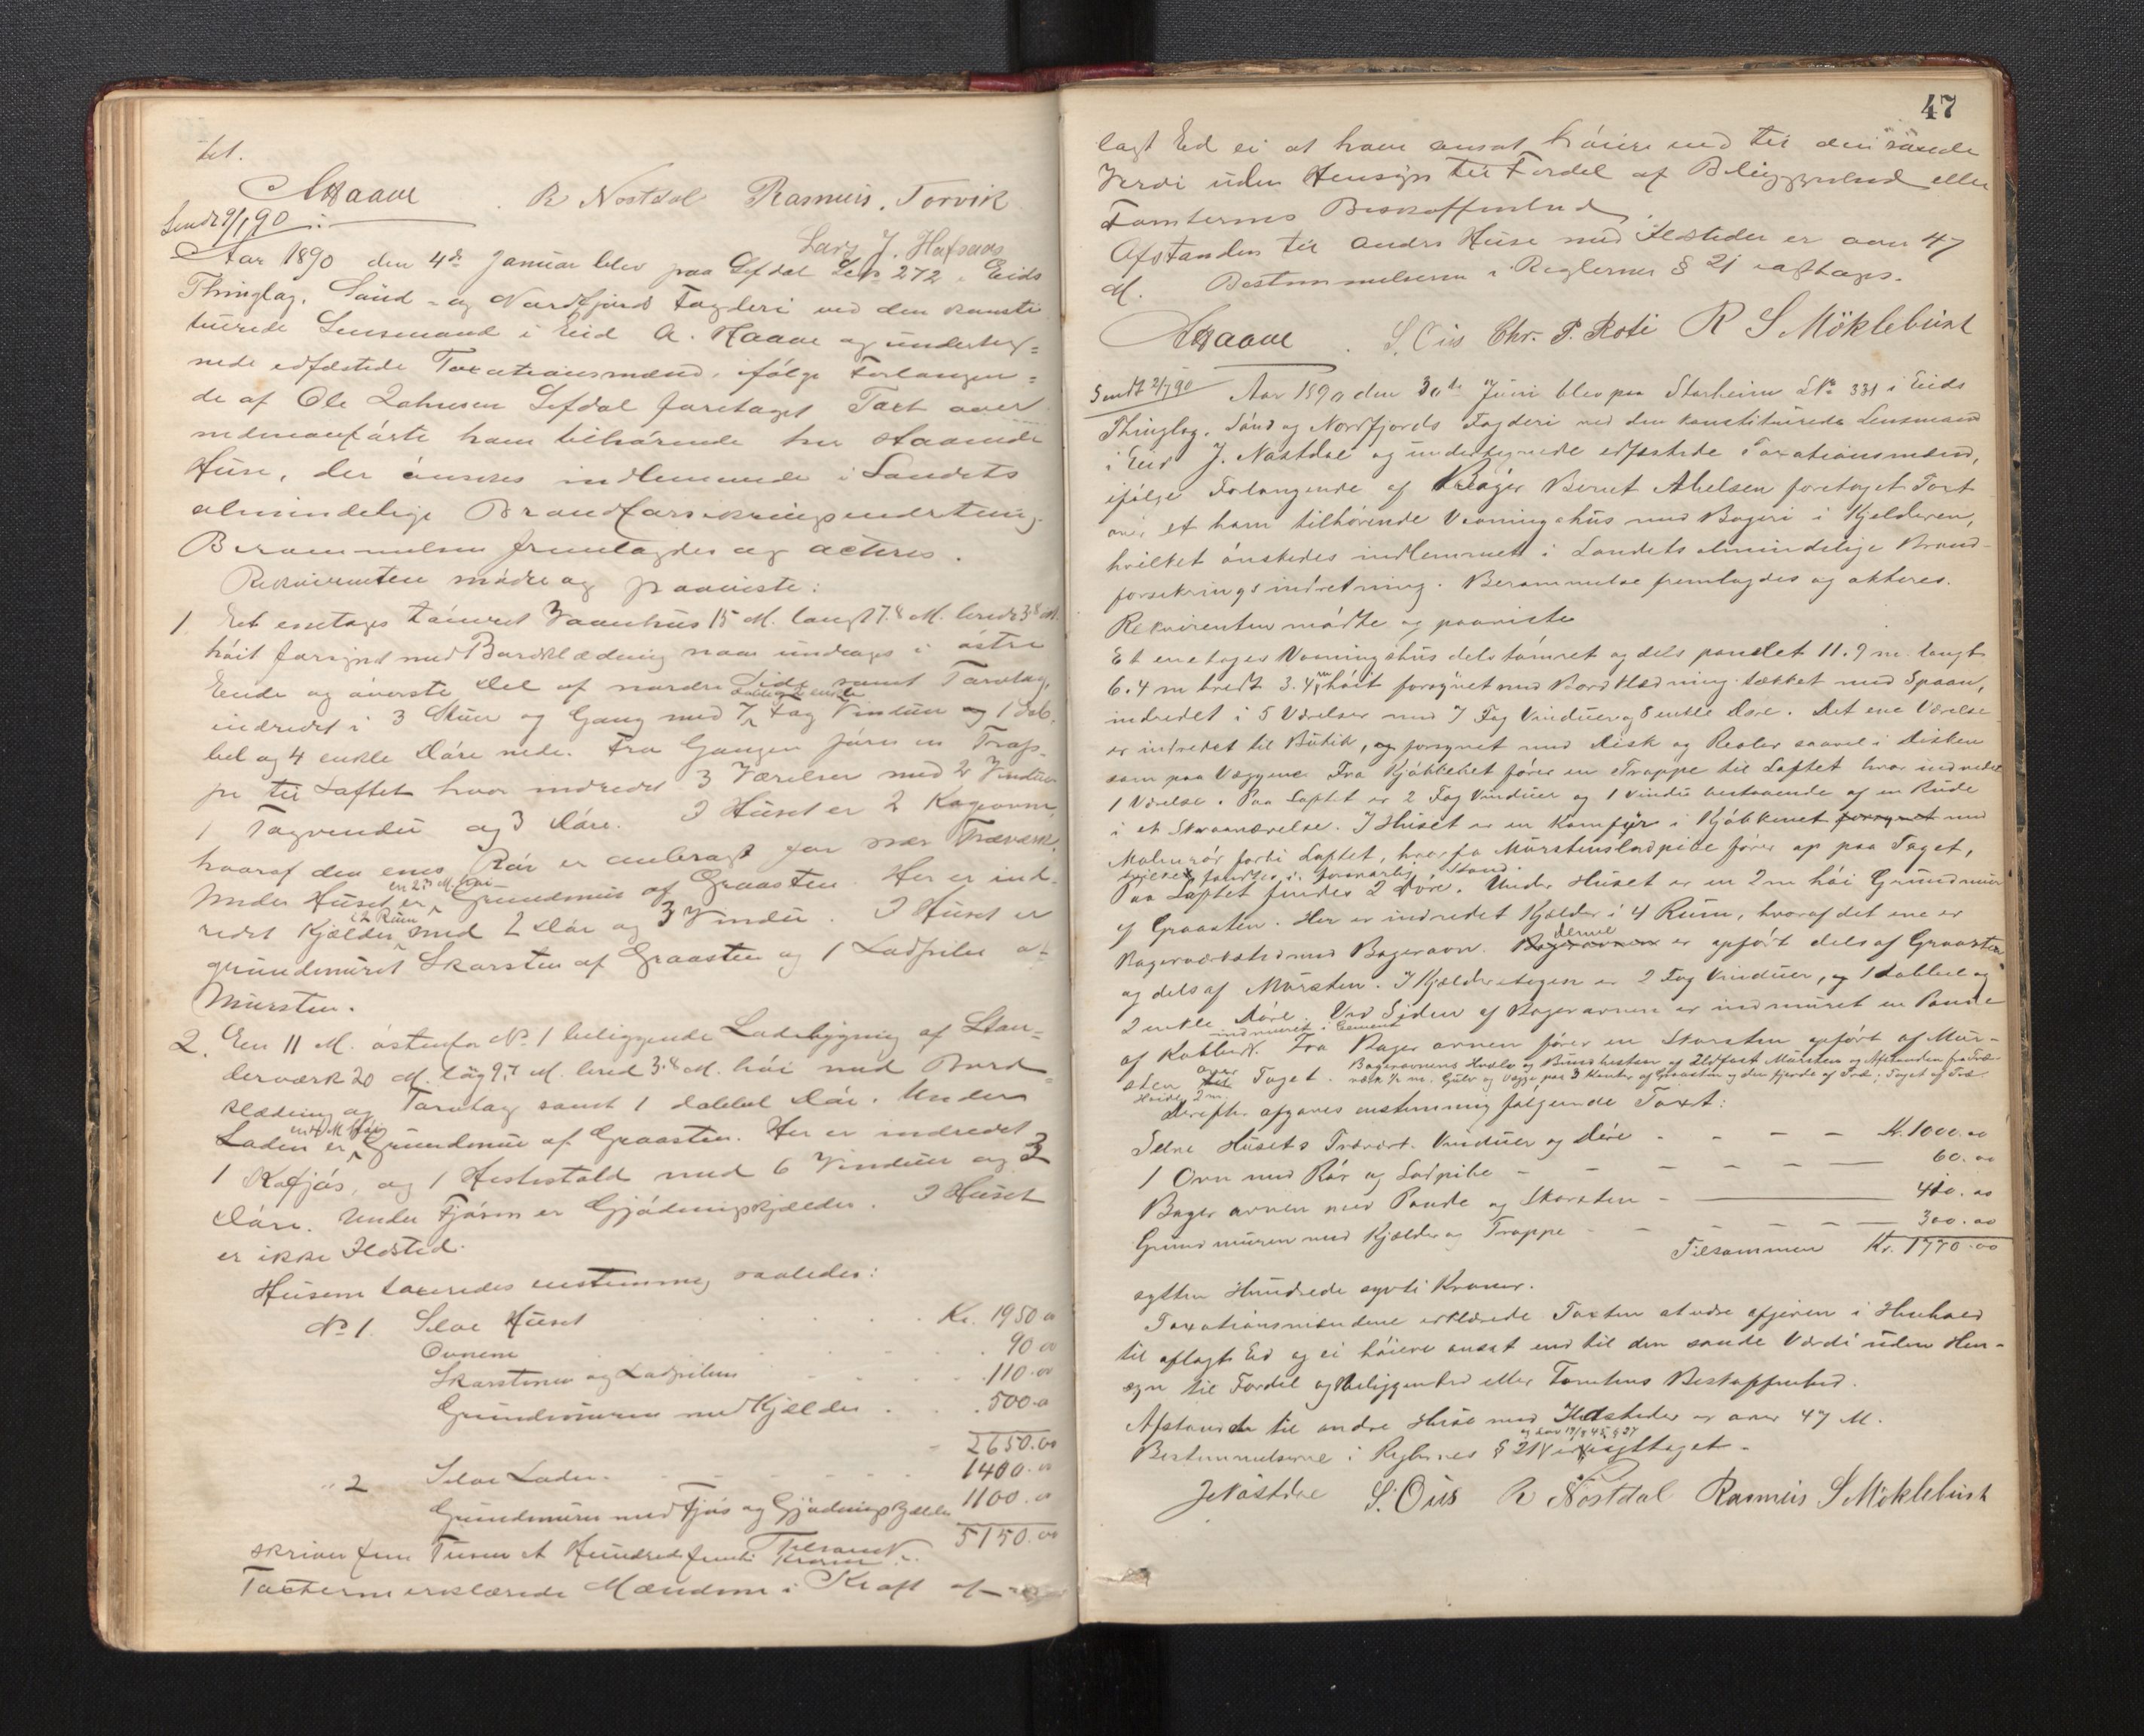 tet.
AHaave R Nostdal Rasmus. Torvik
Sendt 9/1 90
Lars J. Hafsaas
Aar 1890 den 4de Januar blev paa Lefdal LNr 272 i Eids
Thinglag, Sünd- og Nordfjords Fogderi ved den konsti
tuerede Lensmand i Eid A. Haave og underteg-
nede edfæstede Taxationsmænd, ifølge Forlangen-
de af Ole Lefdal foretaget Taxt over
nedenanførte ham tilhørende her staaende
Huse, der ønskes indlemmede i Landets
almindelige Brandforsikringsindretning.
Berammelsen fremlagdes og acteres.
Rekvirenten mødte og paaviste:
1. Et enetages tømret Vaanhus 15 M. langt 7.8 M. bredt 3.8 M.
høit forsynet med Bordklædning naar undtages i østre
Ende og øverste Del af nordre Side samt Torvtag,
indredet i 3 Stuer og Gang med 7 Fag Vinduer og 1 dob-
bel og 4 enkle Døre nede. Fra Gangen fører en Trap-
pe til Loftet hvor indredet 3 Værelser med 2 Vinduer
1 Tagvindu og 3 Døre. I Huset er 2 Kogeovne,
hvoraf den enes Rør er anbragt for nær Træværk.
Under Huset er en 2 M. høi Grundmur af Graasten. Her er ind-
redet Kjælder i 2 Rum med 2 Dør og 3 Vindu. I Huset er
grundmuret Skorsten af Graasten og 1 Ladpibe af
Mursten.
2. En 11 M. østenfor No 1 beliggende Ladebygning af Stan-
derværk 20 M. lang 9.7 M. bred 3.8 M. høi med Bord-
klædning og Torvtag samt 1 dobbel Dør. Under
Laden er en M høi Grundmur af Graasten. Her er indredet
1 Kofjøs, og 1 Hestestald med 6 Vinduer og 3
Døre. Under Fjøsen er Gjødningskjælder. I Huset
er ikke Ildsted.
Husene taxeredes enstemmig saaledes:
No 1. Selve Huset Kr. 1950 00
Ovnene 90 00
Skorstenen og Ladpiben 110.00
Grundmuren med Kjælder 500.00
2650.00
" 2 Selve Laden 1400.00
Grundmuren med Fjøs og Gjødningskjælder 1100.00
Tilsammen 5150.00
skriver fem Tusen et Hundrede femti Kroner.
Taxterne erklærede Mændene i Kraft af
47
lagt Ed ei at have ansat høiere end til den sande
Verdi uden Hensyn til Fordel af Beliggenhed eller
Tomternes Beskaffenhed
Afstanden til andre Huse med Ildsteder er over 47
M. Bestemmelserne i Reglernes § 21 iagttages.
AHaave. S. Ous Chr. P. Roti R S Möklebust
Sendt 2/7 90 Aar 1890 den 30te Juni blev paa Starheim LNo 331 i Eids
Thinglag, Sönd og Nordfjords Fogderi ved den konstituerede Lensmand
i Eid J. Nøstdal og undertegnede edfæstede Taxationsmænd,
ifølge Forlangende af Bager Bernt Abelsen foretaget Taxt
over et ham tilhørende Vaaningshus med Bageri i Kjelderen,
hvilket ønskedes indlemmet i Landets almindelige Brand-
forsikringsindretning. Berammelse fremlagdes og akteres.
Rekvirenten mødte og paaviste
Et enetages Vaaningshus dels tømret og dels panelet 11.9 m. langt
6.4 m bredt 3.4 m høit forsynet med Bordklædning tækket med Spaan,
indredet i 5 Værelser med 7 Fag Vinduer og 8 enkle Døre. Det ene Værelse
er indredet til Butik, og forsynet med Disk og Reoler saavel i Disken
som paa Væggene. Fra Kjøkkenet fører en Trappe til Loftet hvor indredet
1 Værelse. Paa Loftet er 2 Fag Vinduer og 1 Vindu bestaaende af en Rude
i et Skraaværelse. I Huset er en Komfyr i Kjøkkenet forsynet med
Malmrør forbi Loftet, hvorfra Murstensladpibe fører op paa Taget,
forsvarlig Stand.
Paa Loftet findes 2 Døre. Under Huset er en 2 m høi Grundmur
af Graasten. Her er indredet Kjælder i 4 Rum, hvoraf det ene er
Bagerværksted med Bagerovn. Bagerovnen denne er opført dels af Graasten
og dels af Mursten. I Kjælderetagen er 2 Fag Vinduer, og 1 dobbel og
2 enkle Døre. Ved Siden af Bagerovnen er indmuret en Pande
indmuret i Cement
af Kobber. Fra Bagerovnen fører en Skorsten opført af Mur-
sten over Taget. Bagerovnens Hvælv og Bund bestaar af Ildfast Mursten og Afstanden fra Træ-
værk 1/2 m. Gulv og Vægge paa 3 Kanter af Graasten og den fjerde af Træ; Taget af Træ.
Høide 2 m.
Derefter afgaves enstemmig følgende Taxt:
Selve Husets Træværk Vinduer og Døre Kr. 1000.00
1 Ovn med Rør og Ladpibe 60.00
Bagerovnen med Pande og Skorsten 410.00
Grundmuren med Kjælder og Trappe 300.00
Tilsammen Kr. 1770.00
sytten Hundrede sytti Kroner.
Taxationsmændene erklærede Taxten at være afgiven i Henhold
til aflagt Ed og ei høiere ansat end til den sande Værdi uden Hen-
syn til Fordel af Beliggenhed eller Tomtens Beskaffenhed.
Afstanden til andre Huse med Ildsteder er over 47 M.
Bestemmelserne i Reglernes § 21 er iagttaget.
JNøstdal S. Ous R Nostdal Rasmus S Möklebust